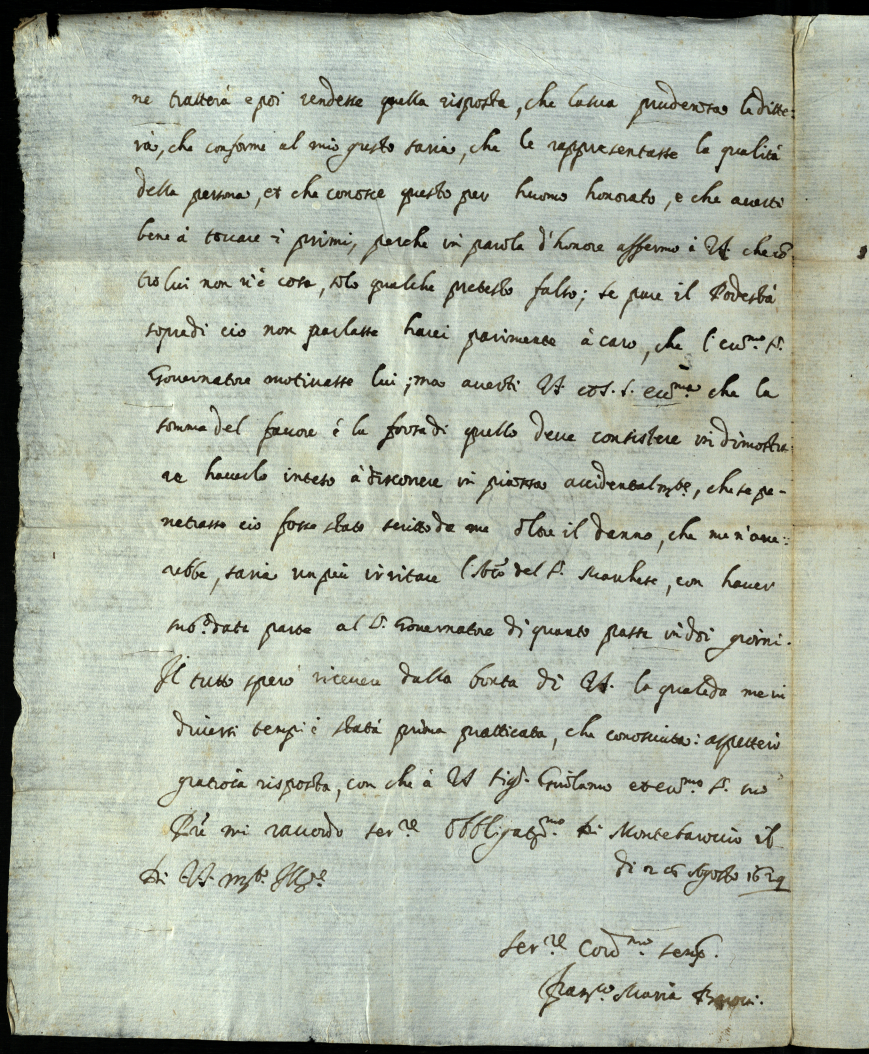 ne trattera e poi rendesse quella risposta, che la sua prudenza le ditte:
rà, che conforme al mio gusto saria, che le rappresentasse la qualità
della persona, et che conosce questo per huomo honorato, e che averti
bene à toccare i primi, perche in parola d'honore affermo à VS che cõ
tro lui non v'è cosa, solo qualche pretesto falso; se pure il Podestà
sopra di cio non parlasse harei parimente à caro, che l'ecc.mo S.r
Governatore motivasse lui; ma averti VS et S. S. ecc.ma che la
somma del favore è la forza di quello deve consistere in dimostra
re haverlo inteso à discorrere in piazza accidentalm.te, che se pe-
netrasse cio fosse stato scritto da me oltre il danno, che me n'avve:
rebbe, saria un più irritare l' del S.r Marchese, con haver
sub.o data parte al S.r Governatore di quanto passa in doi giorni.
Il tutto spero ricevere dalla bontà di VS. la quale da me in
diversi tempi è stata prima pratticata, che conosciuta: aspetterò
gratiosa risposta, con che à VS Sig.r et ecc.mo S. suo
Pre mi raccordo ser.re obbligat.mo Di Montebaroccio il
di 26 Agosto 1629
Di VS. m.to Ill.re
Ser.re Cord.mo semp.
Fran.co Maria